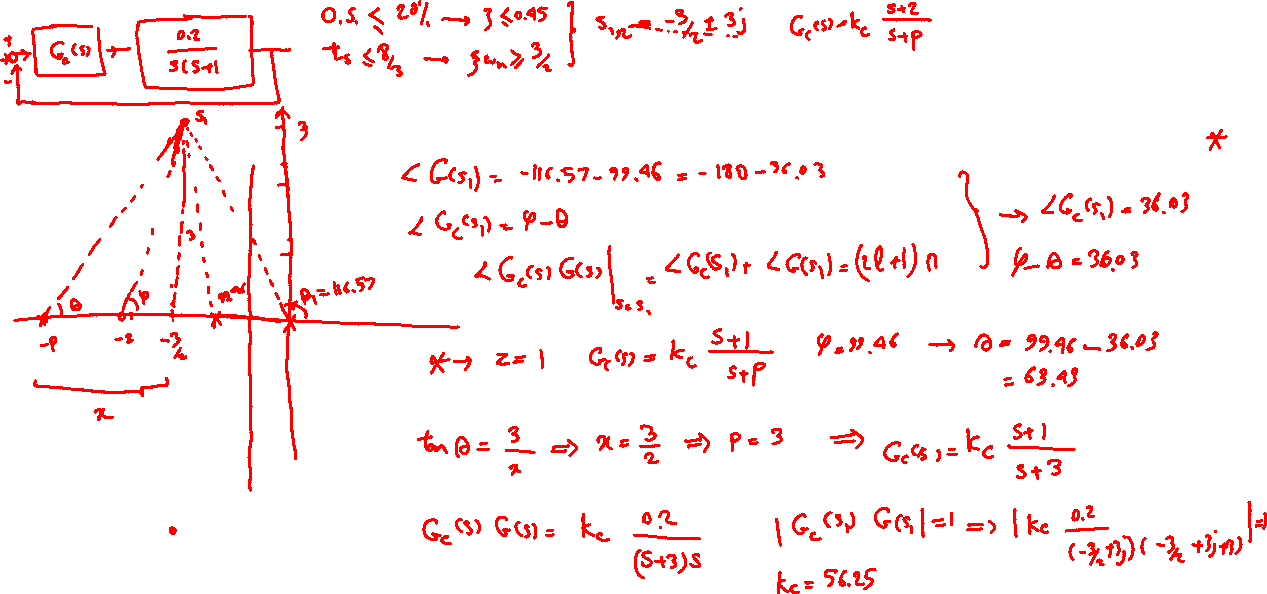 O.S. ≤ 20% → ξ ≤ 0.45
t_s ≤ 8/3 → ξω_n ≥ 3/2
} s_{1,2} = -3/2 ± 3j
G_c(s) = k_c (s+z)/(s+p)
+
-
G_c(s) → 0.2 / s(s+1
s_1
3
3
θ
φ
99.46
θ_1 = 116.57
-p
-z
-3/2
x
*
∠G(s_1) = -116.57 - 99.46 = -180 - 36.03
∠G_c(s_1) = φ - θ
∠G_c(s) G(s)|_{s=s_1} = ∠G_c(s_1) + ∠G(s_1) = (2l+1)π
} → ∠G_c(s_1) = 36.03
φ - θ = 36.03
* → z = 1 G_c(s) = k_c (s+1)/(s+p) φ = 99.46 → θ = 99.46 - 36.03
= 63.43
tan θ = 3/x ⇒ x = 3/2 ⇒ p = 3 ⇒ G_c(s) = k_c (s+1)/(s+3)
G_c(s) G(s) = k_c 0.2/((s+3)s) |G_c(s_1) G(s_1)| = 1 ⇒ |k_c 0.2/((-3/2+3j)(-3/2+3j+3))| = 1
k_c = 56.25